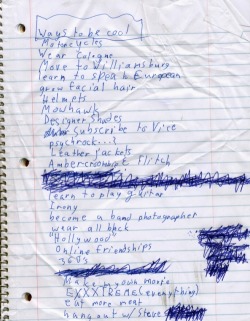 Ways to be cool
Motorcycles
Wear Cologne
Move to Williamsburg
learn to speak European
grow facial hair
Helmets
Mowhawk
Designer Shades
Subscribe to Vice
psychrock...?
Leather Jackets
Ambercrombie & Flitch
learn to play guitar
Irony
become a band photographer
wear all back
Hollywood
Online friendships
Make my own movie
EXXXTREME (everything)
eat more meat
hang out w/ Steve